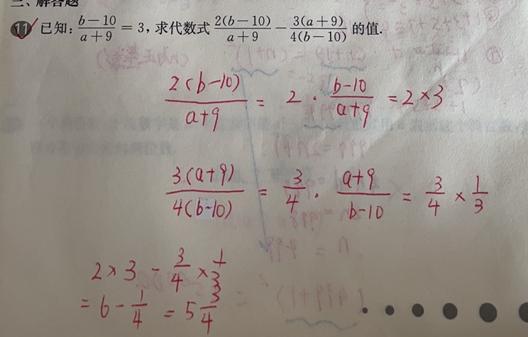 三、解答题
11 已知: (b-10)/(a+9) = 3, 求代数式 2(b-10)/(a+9) - 3(a+9)/(4(b-10)) 的值.
2(b-10)/(a+9) = 2 · (b-10)/(a+9) = 2×3
3(a+9)/(4(b-10)) = 3/4 · (a+9)/(b-10) = 3/4 × 1/3
2×3 - 3/4 × 1/3
= 6 - 1/4 = 5 3/4